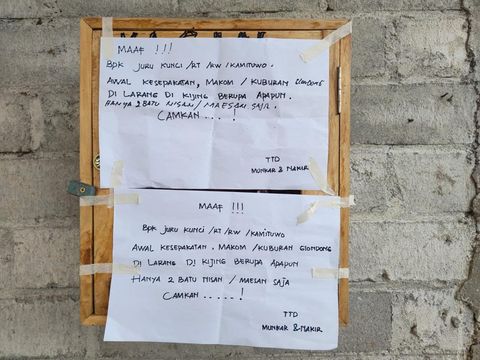 MAAF !!!
BPK JURU KUNCI /RT /RW /KAMITUWO.
AWAL KESEPAKATAN, MAKOM / KUBURAN GLONDONG
DI LARANG DI KIJING BERUPA APAPUN.
HANYA 2 BATU NISAN / MAESAN SAJA.
CAMKAN . . . . !
TTD
MUNKAR & NAKIR
MAAF !!!
BPK JURU KUNCI /RT /RW /KAMITUWO
AWAL KESEPAKATAN. MAKOM /KUBURAN GLONDONG
DI LARANG DI KIJING BERUPA APAPUN
HANYA 2 BATU NISAN / MAESAN SAJA
CAMKAN . . . . . !
TTD
MUNKAR & NAKIR